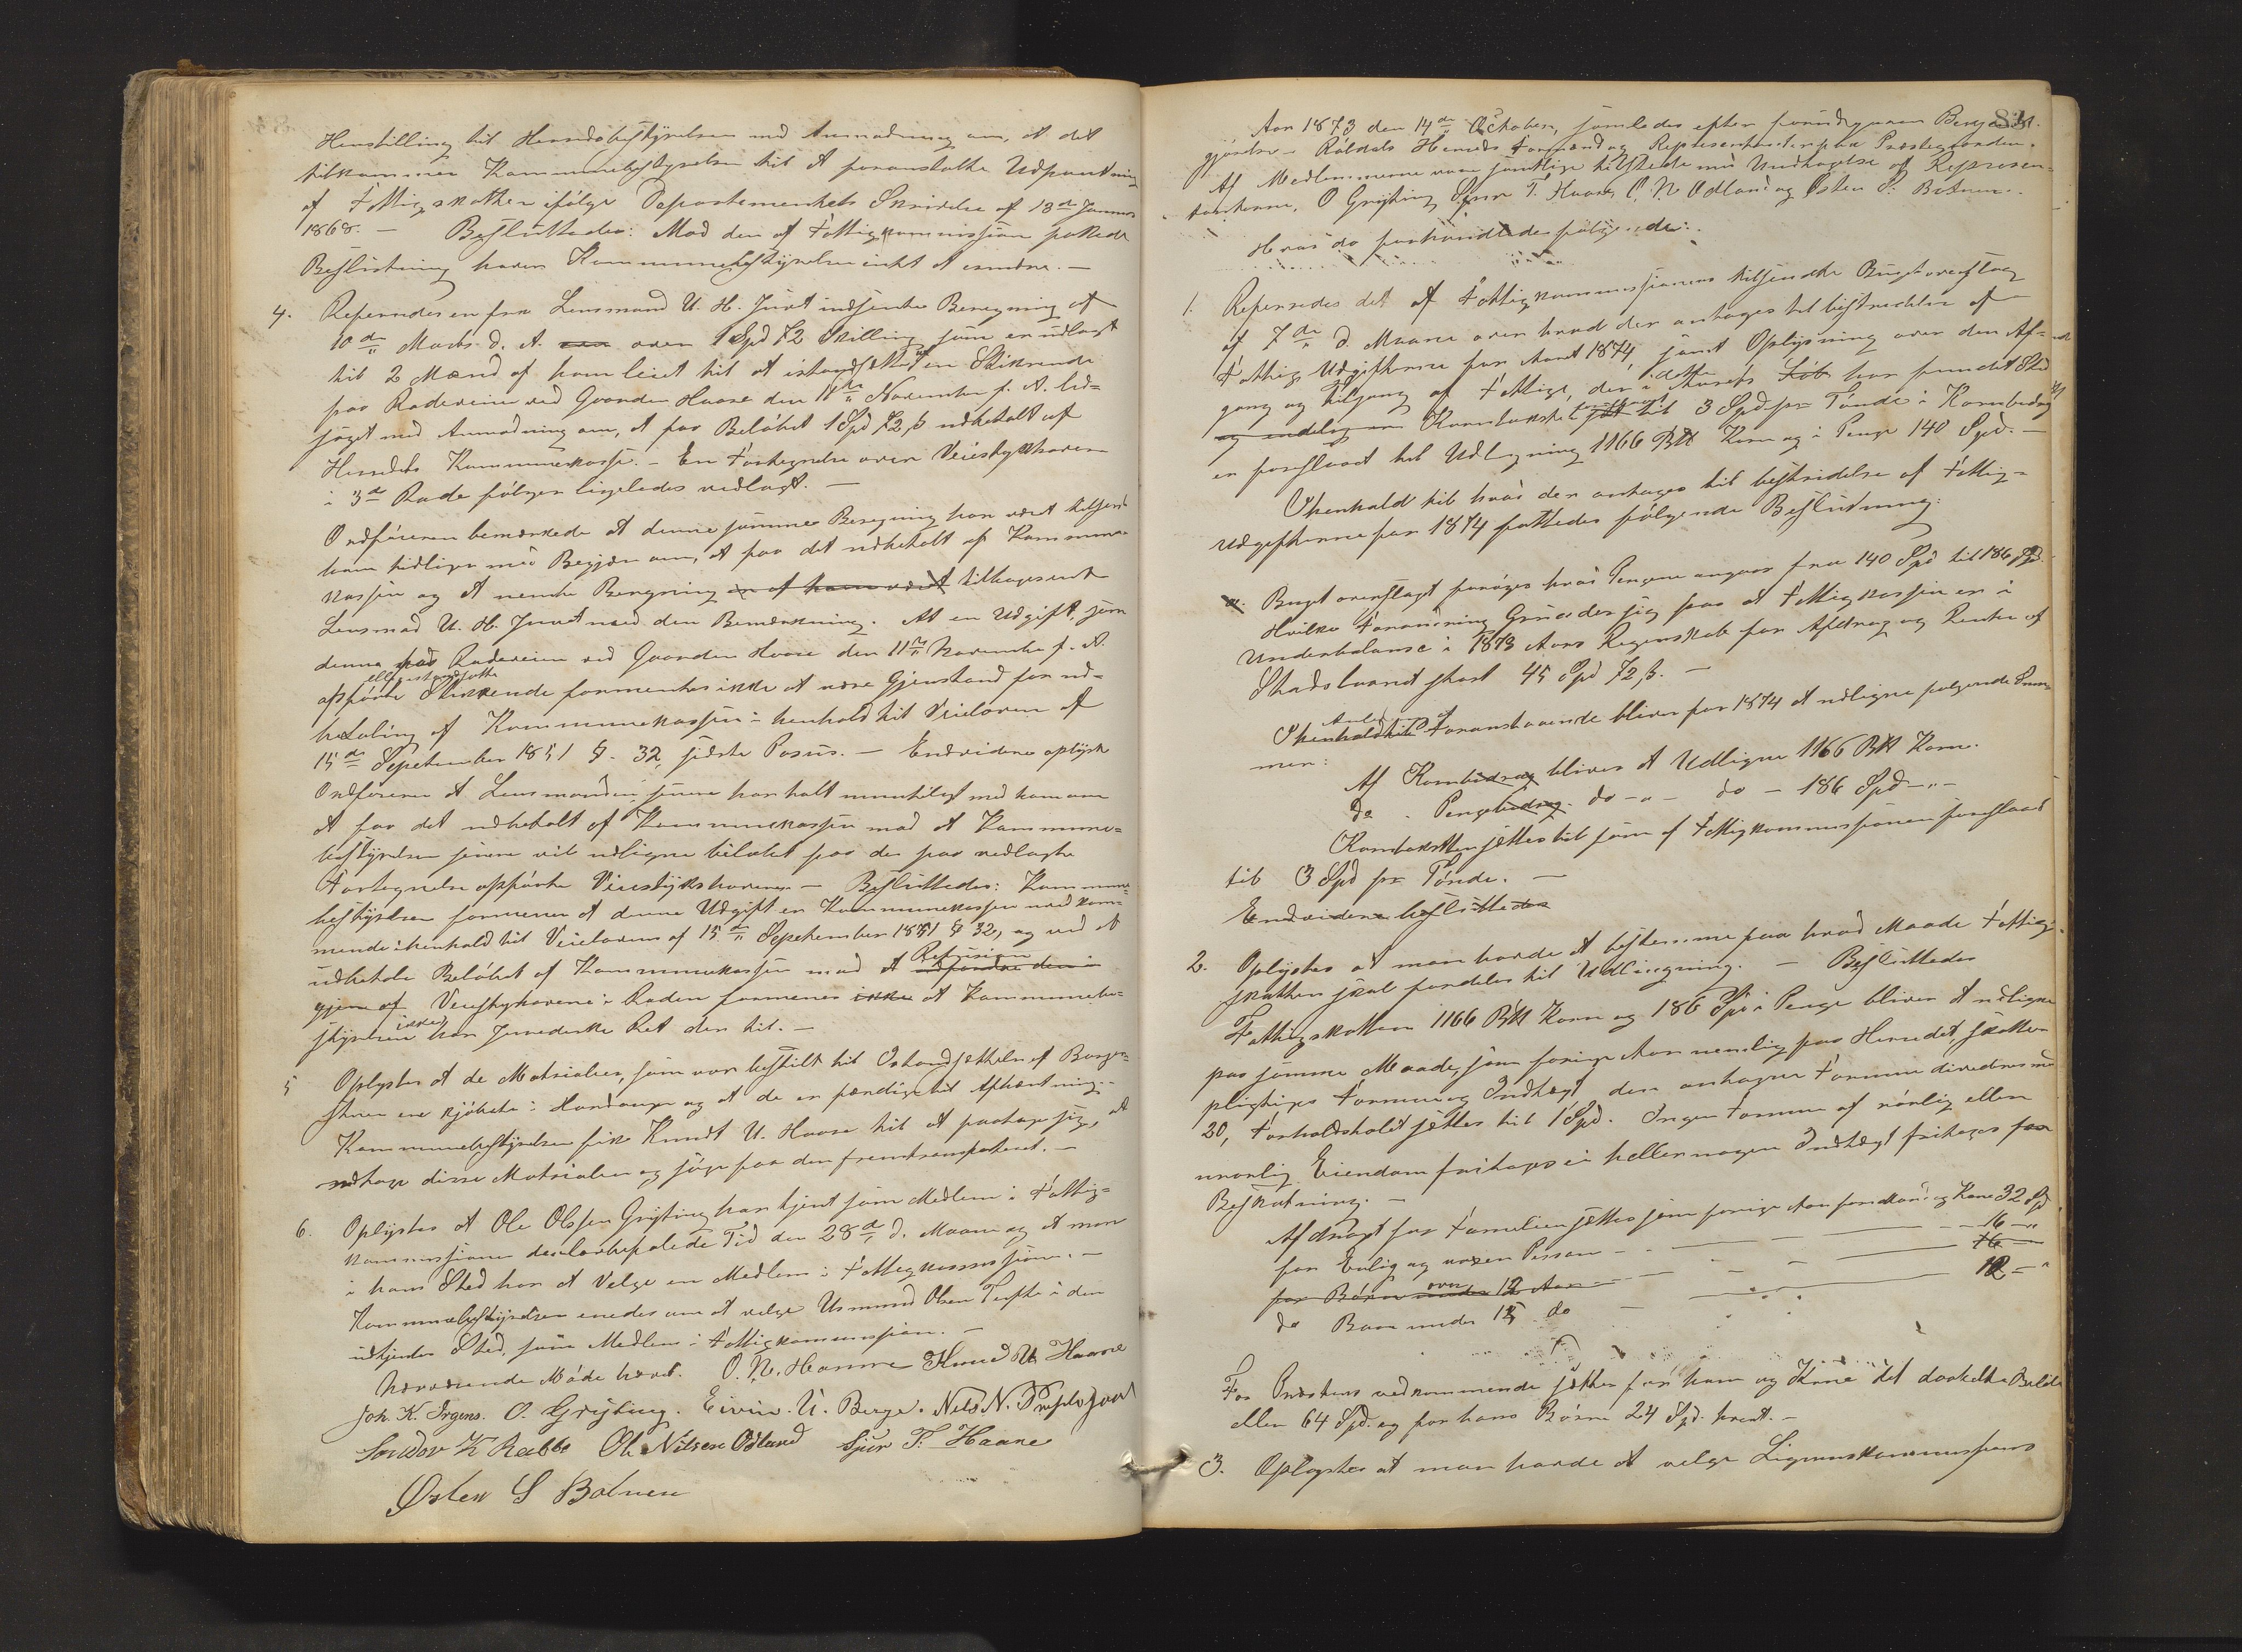 Henstilling til Herredsbestyrelsen med Anmodning om, at det
tilkommer Kommunebestyrelsen til at foranstalte Udpantning
af Fattigskatten ifølge Departementets Skrivelse af 13de Januar
1868. — Besluttedes: Mod den af Fattigkommissjonen fattede
Beslutning haver Kommunebestyrelsen intet at erindre. —
4. Refereredes en fra Lensmand U. H. Juvet indsendte Beregning af
10de Marts d. A. over 1 Spd 72 Skilling som er udlagt
til 2 Mænd af ham leiet til at istandsætte en Stikrende
paa Rodeveien ved Gaarden Haare den 11te November f. A. led-
saget med Anmodning om, at faa Beløbet 1 Spd 72 ß udbetalt af
Herredets Kommunekasse. — En Fortegnelse over Veistykkhavere
i 3de Rode følger ligeledes vedlagt. —
Ordføreren bemærkede at denne samme Beregning har været tilsendt
ham tidligere med Begjær om, at faa det udbetalt af Kommune-
kassen og at nemte Beregning er af ham været tilbagesendt
Lensmad U. H. Juvet med den Bemærkning. At en Udgift, som
denne paa Rodeveien ved Gaarden Haare den 11te November f. A.
opførte eller istandsatte Stikrende formentes ikke at være Gjenstand for ud-
betaling af Kommunekassen i henhold til Veiloven af
15de September 1851 §. 32, sidste Passus. — Endvidere oplyste
Ordføreren at Lensmanden senere har talt mundtligt med ham om
at faa det udbetalt af Kommunekassen mod at Kommune-
bestyrelsen senere vil udligne beløbet paa de paa vedlagte
Fortegnelse opførte Veistykshavere. — Besluttedes: Kommune-
bestyrelsen formener at denne Udgift er Kommunekassen uvedkom-
mende i henhold til Veiloven af 15de September 1851 § 32, og ved at
udbetale Beløbet af Kommunekassen mod at udfordre den i Refusion
igjen af Veistykhavene i Roden formenes ikke at Kommunebe-
styrelsen ikke har Juridiske Ret der til. —
5 Oplystes at de Materialier, som var bestilt til Istandsættelse af Borge-
stuen ere kjøbte i Hardanger og at de er færdige til Afhentning.
Kommunebestyrelsen fik Knudt U. Haare til at paatage sig, at
modtage disse Materialier og sørge for den fremtransporteret. —
6. Oplystes at Ole Olsen Grytting har tjent som Medlem i Fattig-
kommissionen den lovbefalede Tid den 28de d. Maaned og at man
i hans Sted har at Velge en Medlem i Fattigkommissionen. —
Kommunebestyrelsen enedes om at velge Usmund Olsen Tufte i den
udtjentes Sted, som Medlem i Fattigkommissjon. —
Nærværende Møde hævet. O. N. Hamre Knud U. Haare
Joh. K. Irgens. O. Grytting. Eivin. U. Berge. Nils N.
Sondov K Rabbe Ole Nilsen Odland Sjur T. Haare
Østen S Botnen
84.
Aar 1873 den 14de October, samledes efter forudgaaen Bekjendt-
gjørelse Røldals Herreds Formænd og Representanter paa Prestegaarden.
Af Medlemmerne vare samtlige tilstede med Undtagelse af Represen-
tanterne, O Grytting Sjur T. Haare O. N Odland og Østen S. Botnen.
Hvor da forhandledes følgende:
1. Refereredes det af Fattigkommissionens tilsendte Bugetoverslag
af 7de d. Maaned over hvad der antages til bestridelse af
Fattig Udgifterne for Aaret 1874, samt Oplysning over den Af-
gang og tilgang af Fattige, der i dette Aarets Løb har fundet Sted
og endelig om Korntaksten foreslaaet til 3 Spd pr Tønde i Kornbidrag
er foreslaaet til Udligning 1166 B℔ Korn og i Penge 140 Spd. —
I henhold til hvad der antages til bestridelse af Fattig-
udgifterne for 1874 fattedes følgende Beslutning:
a. Bugetoverslaget forøges hvad Pengene angaar fra 140 Spd til 186 Spd.
Hvilken Forandring Grunder sig paa at Fattigkassen er i
Underbalance i 1873 Aars Regnskab for Afdrag og Renter af
Stadslaanet stort 45 Spd 72 ß. —
I henhold til Foranstaaende bliver for 1874 at udligne følgende Sum-
mer:
Af Kornbidrag bliver at Udligne 1166 B℔ Korn.
do. Pengebidrag. do — " — do — 186 Spd — " —
Korntaksten sættes til som af Fattigkommissionen foreslaaet
til 3 Spd pr Tønde. —
Endvidere besluttedes
2. Oplystes at man havde at bestemme paa hvad Maade Fattig-
skatten skal fordeles til Udligning. — Besluttedes
Fattigskatten 1166 B℔ Korn og 186 Spd i Penge bliver at udligne
paa samme Maade, som forige Aar nemlig paa Herredets skatte-
pligtiges Formue og Indtægt, den antagne Formue divideres med
20, Forholdstalet sættes til 1 Spd. Ingen Formue af rørlig eller
urørlig Eiendom fritages ei heller nogen Indtægt fritages for
Beskatning. —
Afdraget for Familien sættes som forige Aar for Mand og Kone 32 Spd
for Enlig og voxen Person — 16 — "
for Børn under over 12 Aar — 16
do Barn under 15 do — 12 — "
For Prestens vedkommende sættes for ham og Kone det dobbelte Beløb
eller 64 Spd. og for hans Børn 24 Spd. hvert. —
3. Oplystes at man havde at velge Ligningskommissions